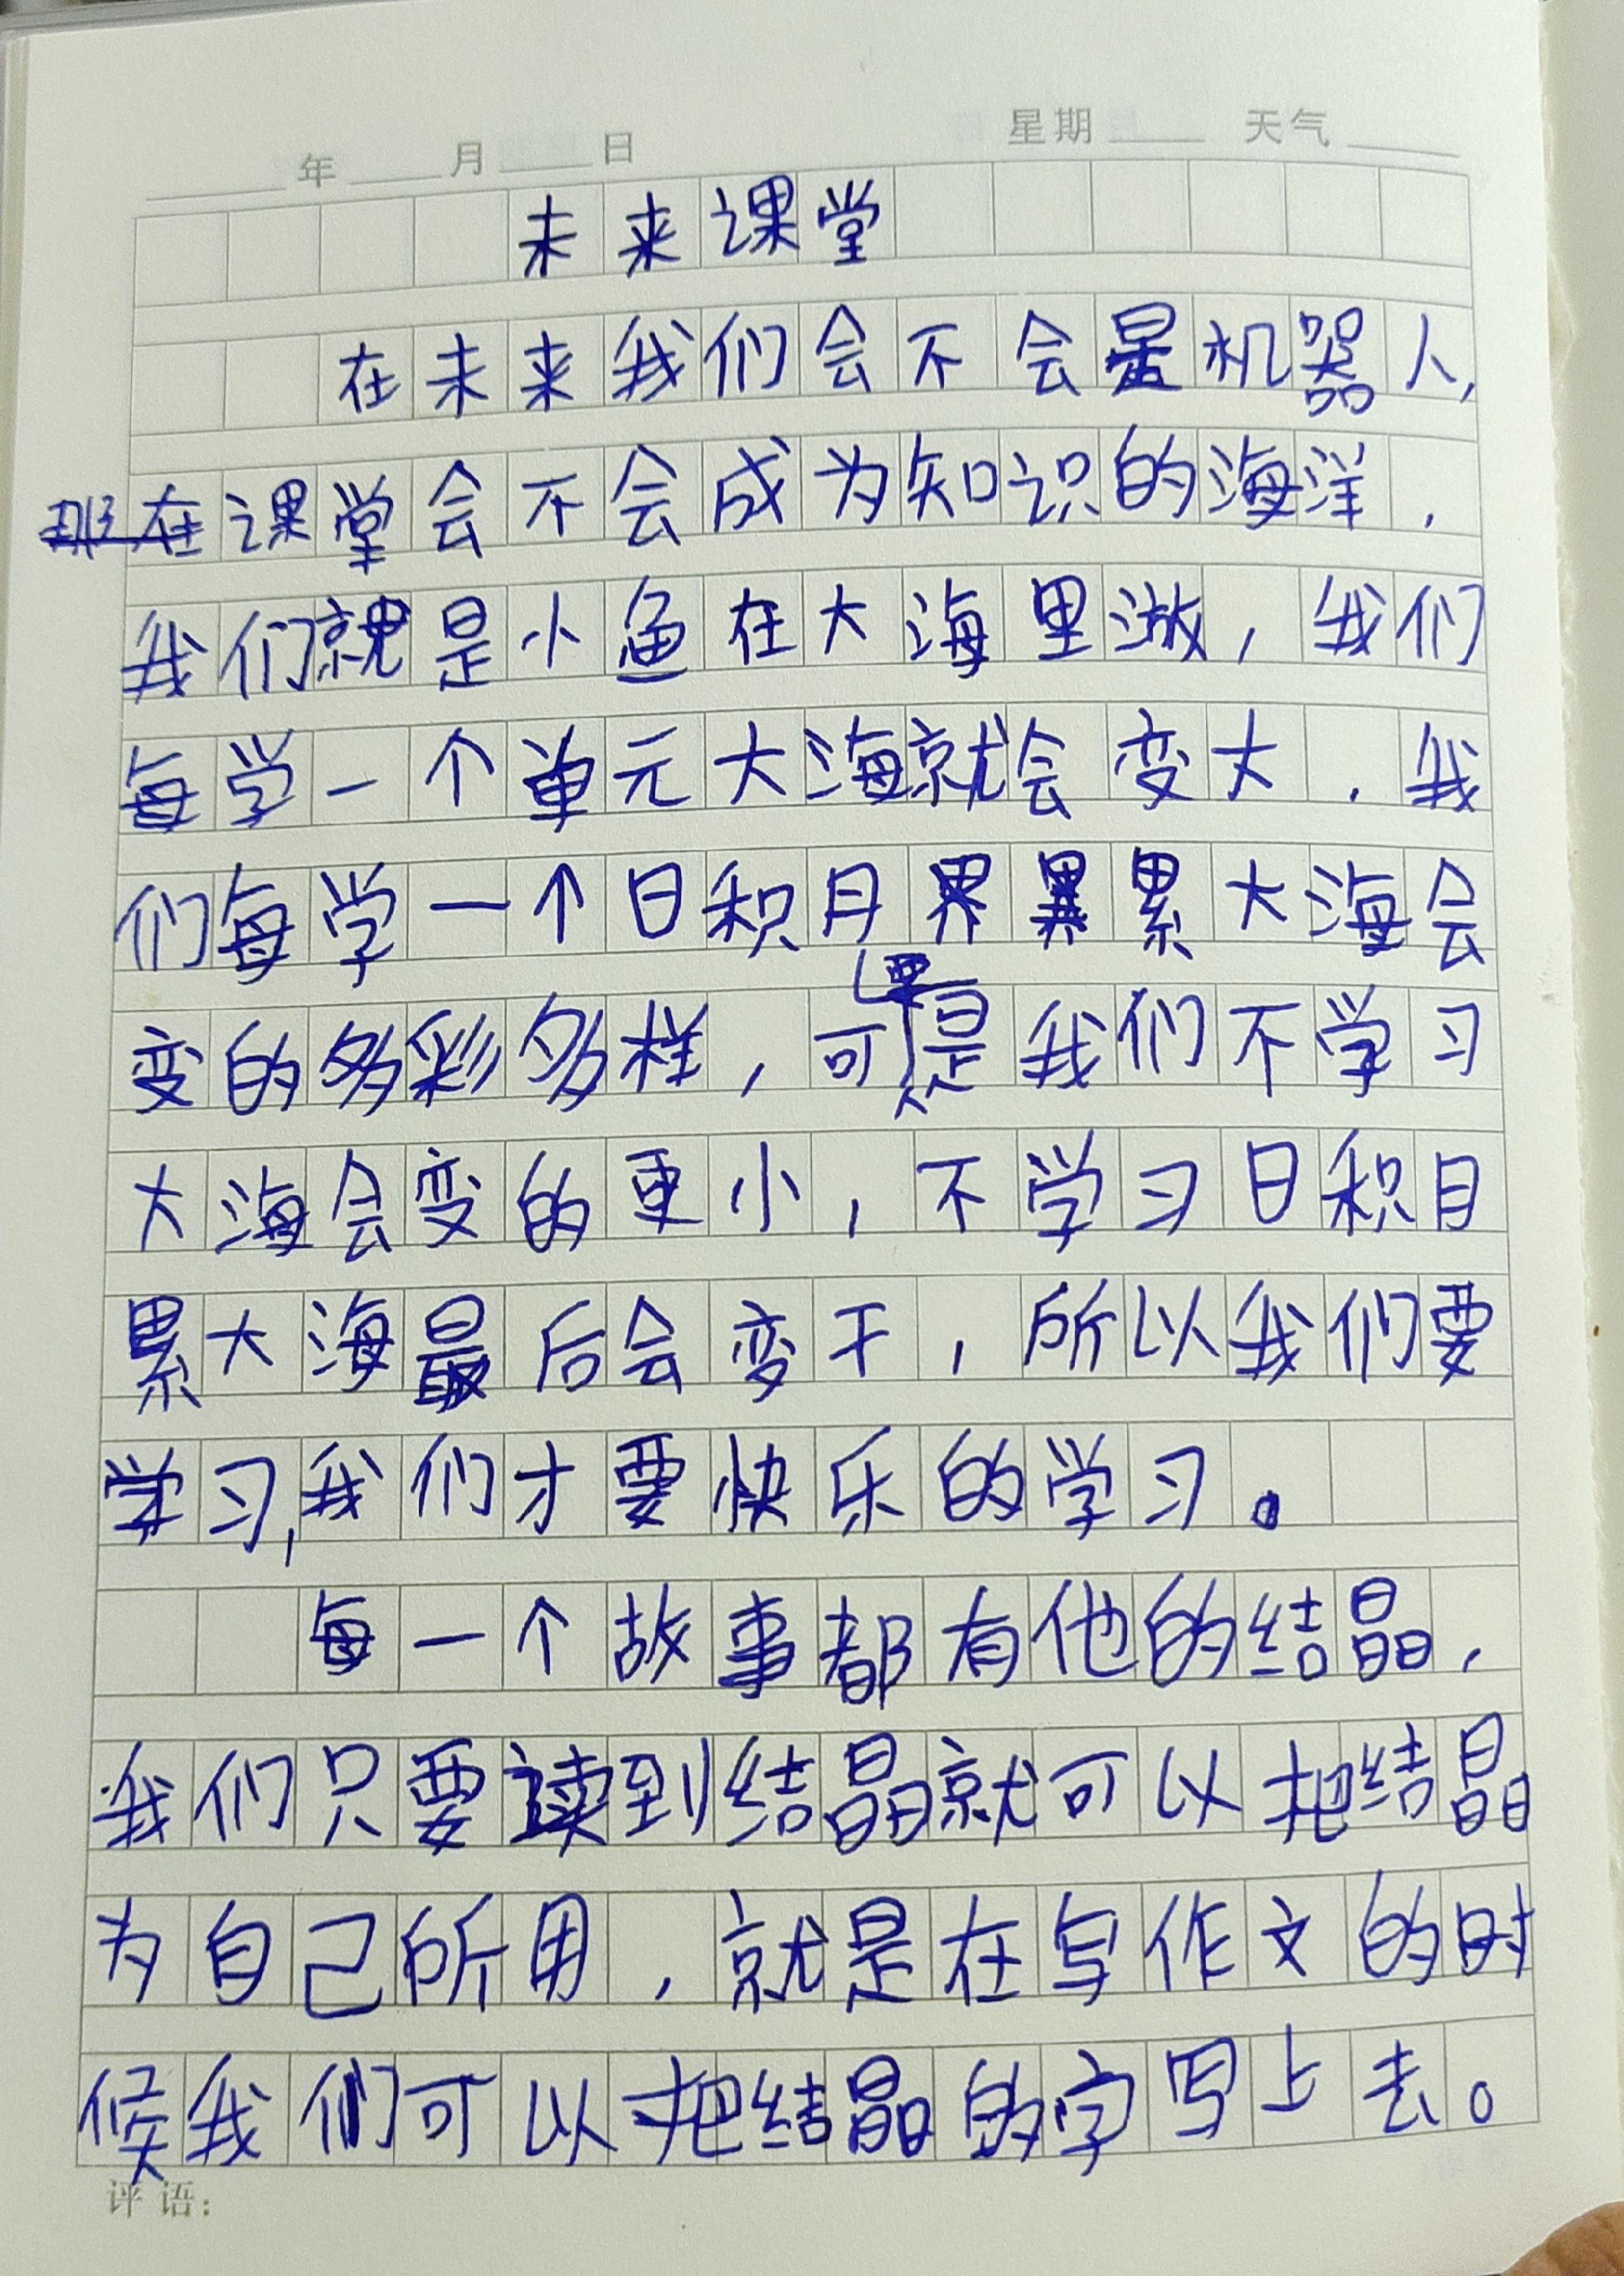 年 月 日 星期 天气
未来课堂
在未来我们会不会是机器人,
课堂会不会成为知识的海洋,
我们就是小鱼在大海里游,我们
每学一个单元大海就会变大,我
们每学一个日积月累大海会
变的多彩多样,可要是我们不学习
大海会变的更小,不学习日积月
累大海最后会变干,所以我们要
学习,我们才要快乐的学习。
每一个故事都有他的结晶,
我们只要读到结晶就可以把结晶
为自己所用,就是在写作文的时
候我们可以把结晶的字写上去。
评语: